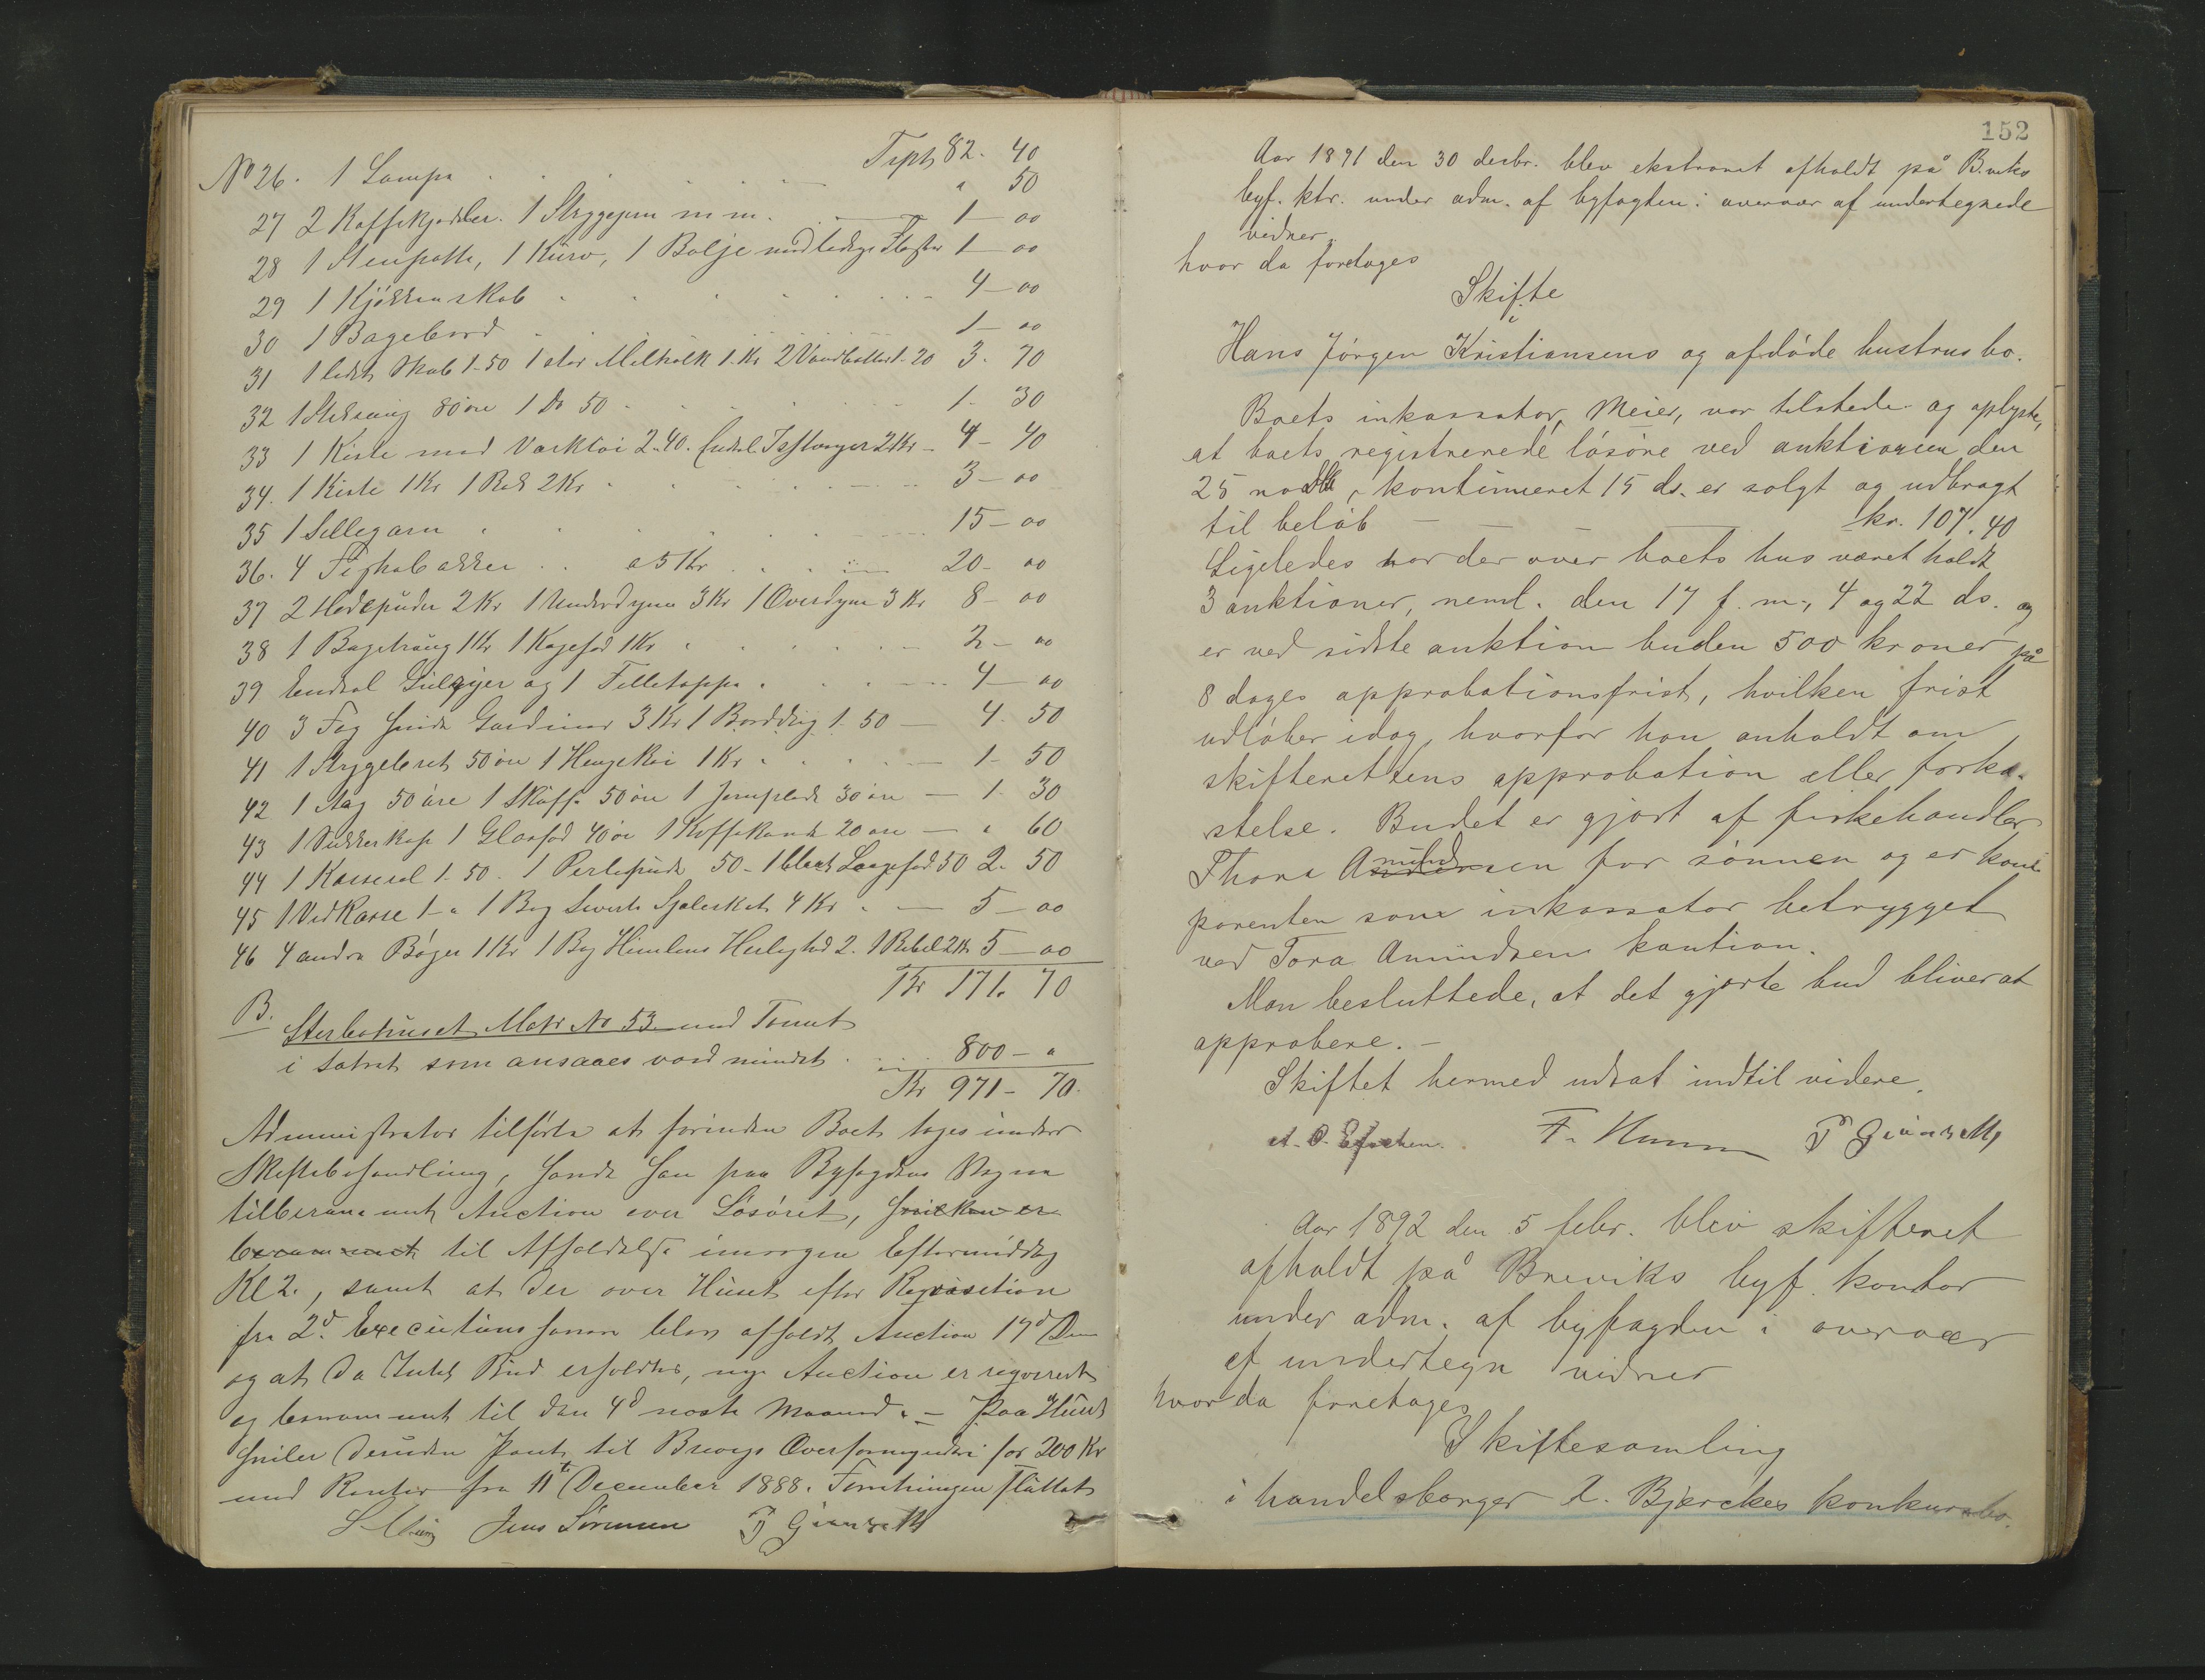 Trpt 82. 40
No 26. 1 Lampe " 50
27 2 Kaffekjedler. 1 Strygejern m m. 1 — 00
28 1 Stenpotte, 1 Kurv, 1 Balje med ledige Flasker 1 — 00
29 1 Kjökkenskab 4 — 00
30 1 Bagebord 1 — 00
31 1 lidet Skab 1-50 1 stor Melkolk 1. Kr 2 Vandbøtter 1-20 3. 70
32 1 80 öre 1 Do 50 1. 30
33 1 Kiste med Værktöi 2.40. Endel 2 Kr — 4 — 40
34. 1 Kiste 1 Kr 1 Rok 2 Kr 3 — 00
35 1 Sillegarn 15 — 00
36. 4 a 5 Kr 20 — 00
37 2 Hodepuder 2 Kr 1 Underdyne 3 Kr 1 Overdyne 3 Kr 8 — 00
38 1 Bagetraug 1 Kr 1 Kagefad 1 Kr 2 — 00
39 Endel og 1 4 — 00
40 3 Fag hvide Gardiner 3 Kr 1 Borddug 1. 50 — 4. 50
41 1 Strygebret 50 öre 1 Hengeköi 1 Kr 1 — 50
42 1 50 öre 1 50 öre 1 30 öre — 1. 30
43 1 Sukkerkop 1 Glasfad 40 öre 1 Kaffekande 20 öre — " 60
44 1 Kasserol 1. 50. 1 50 - 1 50 2. 50
45 1 Vedkasse 1 - " 1 Bog Sjæleskat 4 Kr 5 — 00
46 4 andre Böger 1 Kr 1 Bog Himlens Herlighed 2. 1 Bibel 2 Kr 5 — 00
Kr 171. 70
B.
Sterbohuset Matr No 53 med Tomt
i Satret som ansaaes værd mindst 800 — "
Kr 971 — 70.
Administrator tilförte at forinden Boet toges under
Skiftebehandling, havde han paa Byfogdens Vegne
tilberammet Auction over Lösöret, hvilken er
berammet til Afholdelse imorgen Eftermiddag
Kl 2., samt at der over Huset efter Reqvisition
fra 2d. Executionshaver blev afholdt Auction 17d Dennes
og at da Intet Bud erholdtes, ny Auction er reqvireret
og berammet til den 4d næste Maaned. — Paa Huset
hviler desuden Pant til Brevigs Overformynderi for 200 Kr
med Renter fra 11te December 1888. Forretningen sluttet
Jens Sörensen
152
Aar 1891 den 30 decbr. blev ekstraret afholdt på Breviks
byf. ktr. under adm. af byfogden i overvær af undertegnede
vidner.
hvor da foretages
Skifte
i
Hans Jörgen Kristiansens og afdöde hustrus bo.
Boets inkassator, Meier, var tilstede og oplyste,
at boets registrerede lösöre ved auktionen den
25 novbr, kontinueret 15 ds. er solgt og udbragt
til belöb — — — — kr. 107.40
Ligeledes har der over boets hus været holdt
3 auktioner, neml. den 17 f. m., 4 og 22 ds. og
er ved sidste auktion buden 500 kroner på
8 dages approbationsfrist, hvilken frist
udlöber idag, hvorfor han anholdt om
skifterettens approbation eller forka-
stelse. Budet er gjort af fiskehandler
Thora Amundsen for sönnen og er kom-
parenten som inkassator betrygget
ved Tora Amundsens kaution.
Man besluttede, at det gjorte bud bliver at
approbere. —
Skiftet hermed udsat indtil videre.
Aar 1892 den 5 febr. blev skifteret
afholdt på Breviks byf. kontor
under adm. af byfogden i overvær
af undertegn vidner
hvor da foretages
Skiftesamling
i handelsborger A. Bjerckes konkursbo.